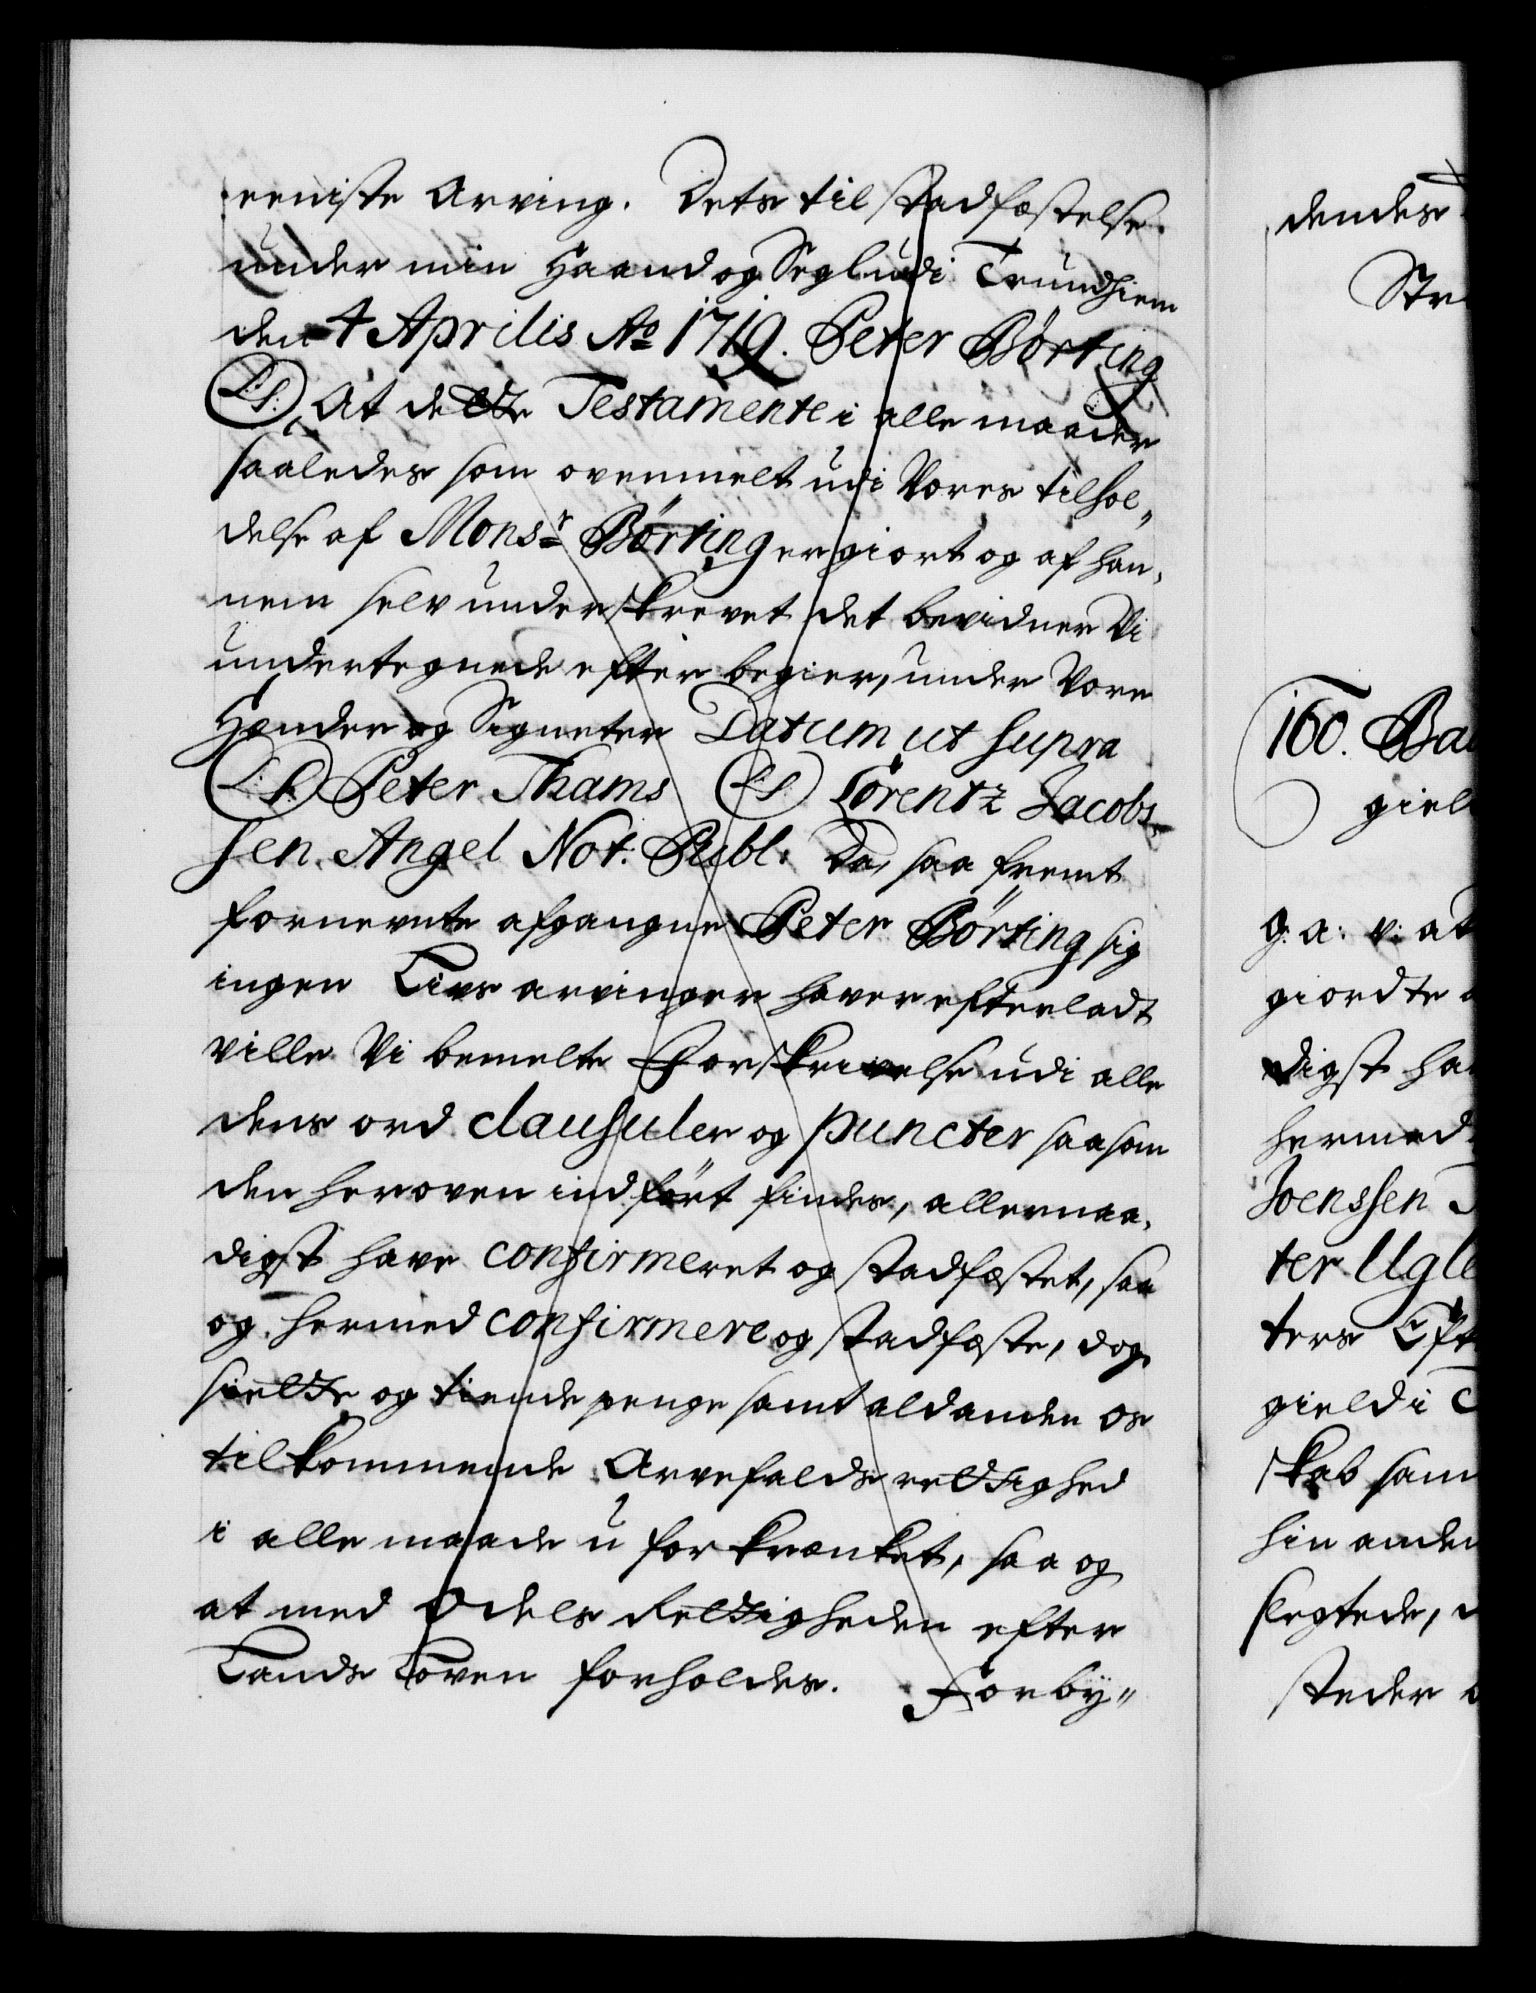 eeniste Arving. Dets til stadfæstelse
under min Haand og Segl udi Trundhiem
den 4 Aprilis Ao 1719. Peter Börting
L.S. At dette Testamente i alle maader
saaledes som ovenmelt udi Vores tilhol„
delse af Monsr Börting er giort og af han„
nem selv underskrevet det bevidner Vi
undertegnede efter begier, under Vore
Hænder og Signeter Datum ut supra
L.S. Peter Thams L.S. Lorentz Jacobs„
sen Angel Not: Publ: Da, saa fremt
fornevnte afgangne Peter Börting sig
ingen Livs arvinger haver efterladt
ville Vi bemelte Forskrivelse udi alle
dens ord clausuler og puncter saasom
den heroven indfört findes, allernaa„
digst have confirmeret og stadfæstet, saa
og hermed confirmere og stadfæste, dog
siette og tiende penge samt ald anden os
tilkommende Arvefalds rettighed
i alle maade u forkrænket, saa og
at med Odels Rettigheden efter
Lands Loven forholdes. Forby„
dendes
Str
160. Ba
giel
g: a: v: at
giordte
digst ha
hermed
Joenssen
ter Ugle
ters Eft
gield i
skab sam
hin anden
slegtede,
steder